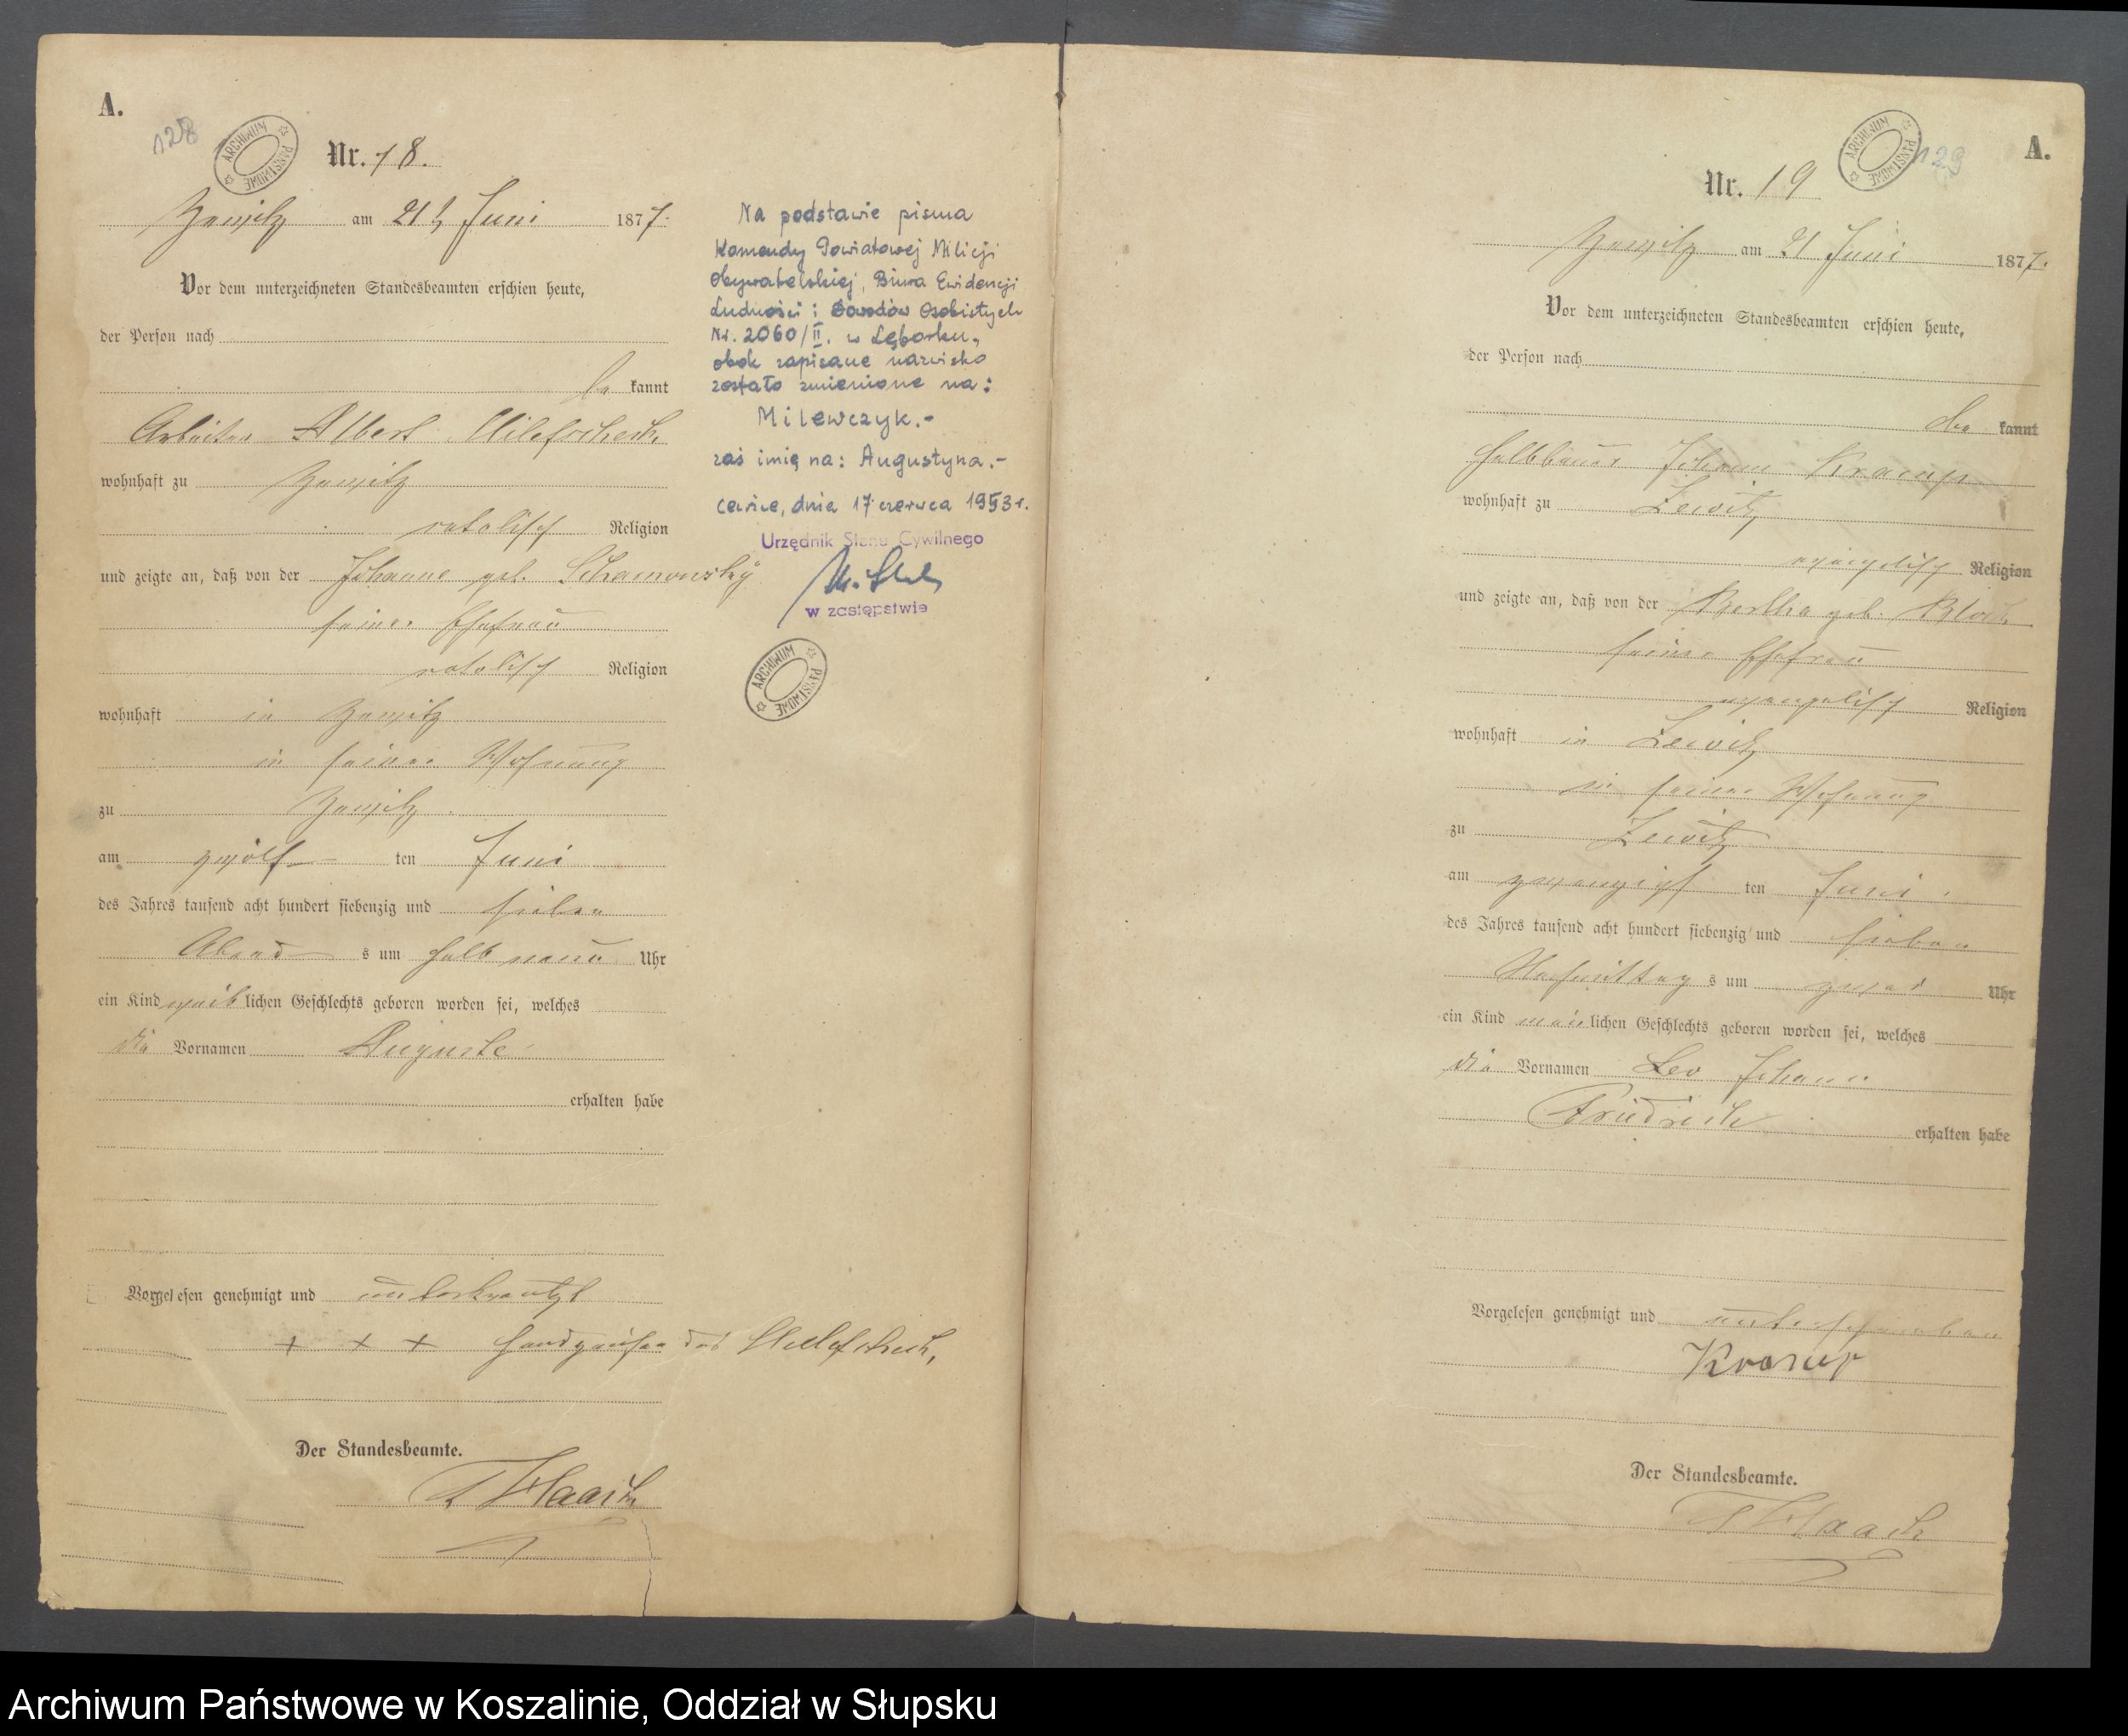 A.
128
ARCHIWUM PAŃSTWOWE
Nr. 18.
Zewitz am 21t Juni 1877.
Vor dem unterzeichneten Standesbeamten erschien heute,
der Person nach
be kannt
Arbeiter Albert Milefscheck
wohnhaft zu Zewitz
catolisch Religion
und zeigte an, daß von der Johanne geb.
seiner Ehefrau
catolisch Religion
wohnhaft in Zewitz
in seiner Wohnung
zu Zewitz
am zwölf ten Juni
des Jahres tausend acht hundert siebenzig und sieben
Abend s um halb neun Uhr
ein Kind weib lichen Geschlechts geboren worden sei, welches
die Vornamen Auguste
erhalten habe
Vorgelesen genehmigt und unterkreutzt
+ + + Handzeichen des Milefscheck,
Der Standesbeamte.
Haack
Na podstawie pisma
Komendy Powiatowej Milicji
Obywatelskiej, Biura Ewidencji
Ludności i Dowodów Osobistych
Nr. 2060/II. w Lęborku,
obok zapisane nazwisko
zostało zmienione na:
Milewczyk.-
zaś imię na: Augustyna.-
Cewice, dnia 17 czerwca 1953 r.
Urzędnik Stanu Cywilnego
w zastępstwie
ARCHIWUM PAŃSTWOWE
A.
129
ARCHIWUM PAŃSTWOWE
Nr. 19
Zewitz am 21 Juni 1877.
Vor dem unterzeichneten Standesbeamten erschien heute,
der Person nach
be kannt
Halbbauer Johann Kramp
wohnhaft zu Zewitz
evangelisch Religion
und zeigte an, daß von der Bertha geb. Block
seiner Ehefrau
evangelisch Religion
wohnhaft in Zewitz
in seiner Wohnung
zu Zewitz
am zwanzigst ten Juni
des Jahres tausend acht hundert siebenzig und sieben
Nachmittag s um zwei Uhr
ein Kind män lichen Geschlechts geboren worden sei, welches
die Vornamen Leo Johann
Friedrich erhalten habe
Vorgelesen genehmigt und unterschrieben
Kramp
Der Standesbeamte.
Haack
Archiwum Państwowe w Koszalinie, Oddział w Słupsku